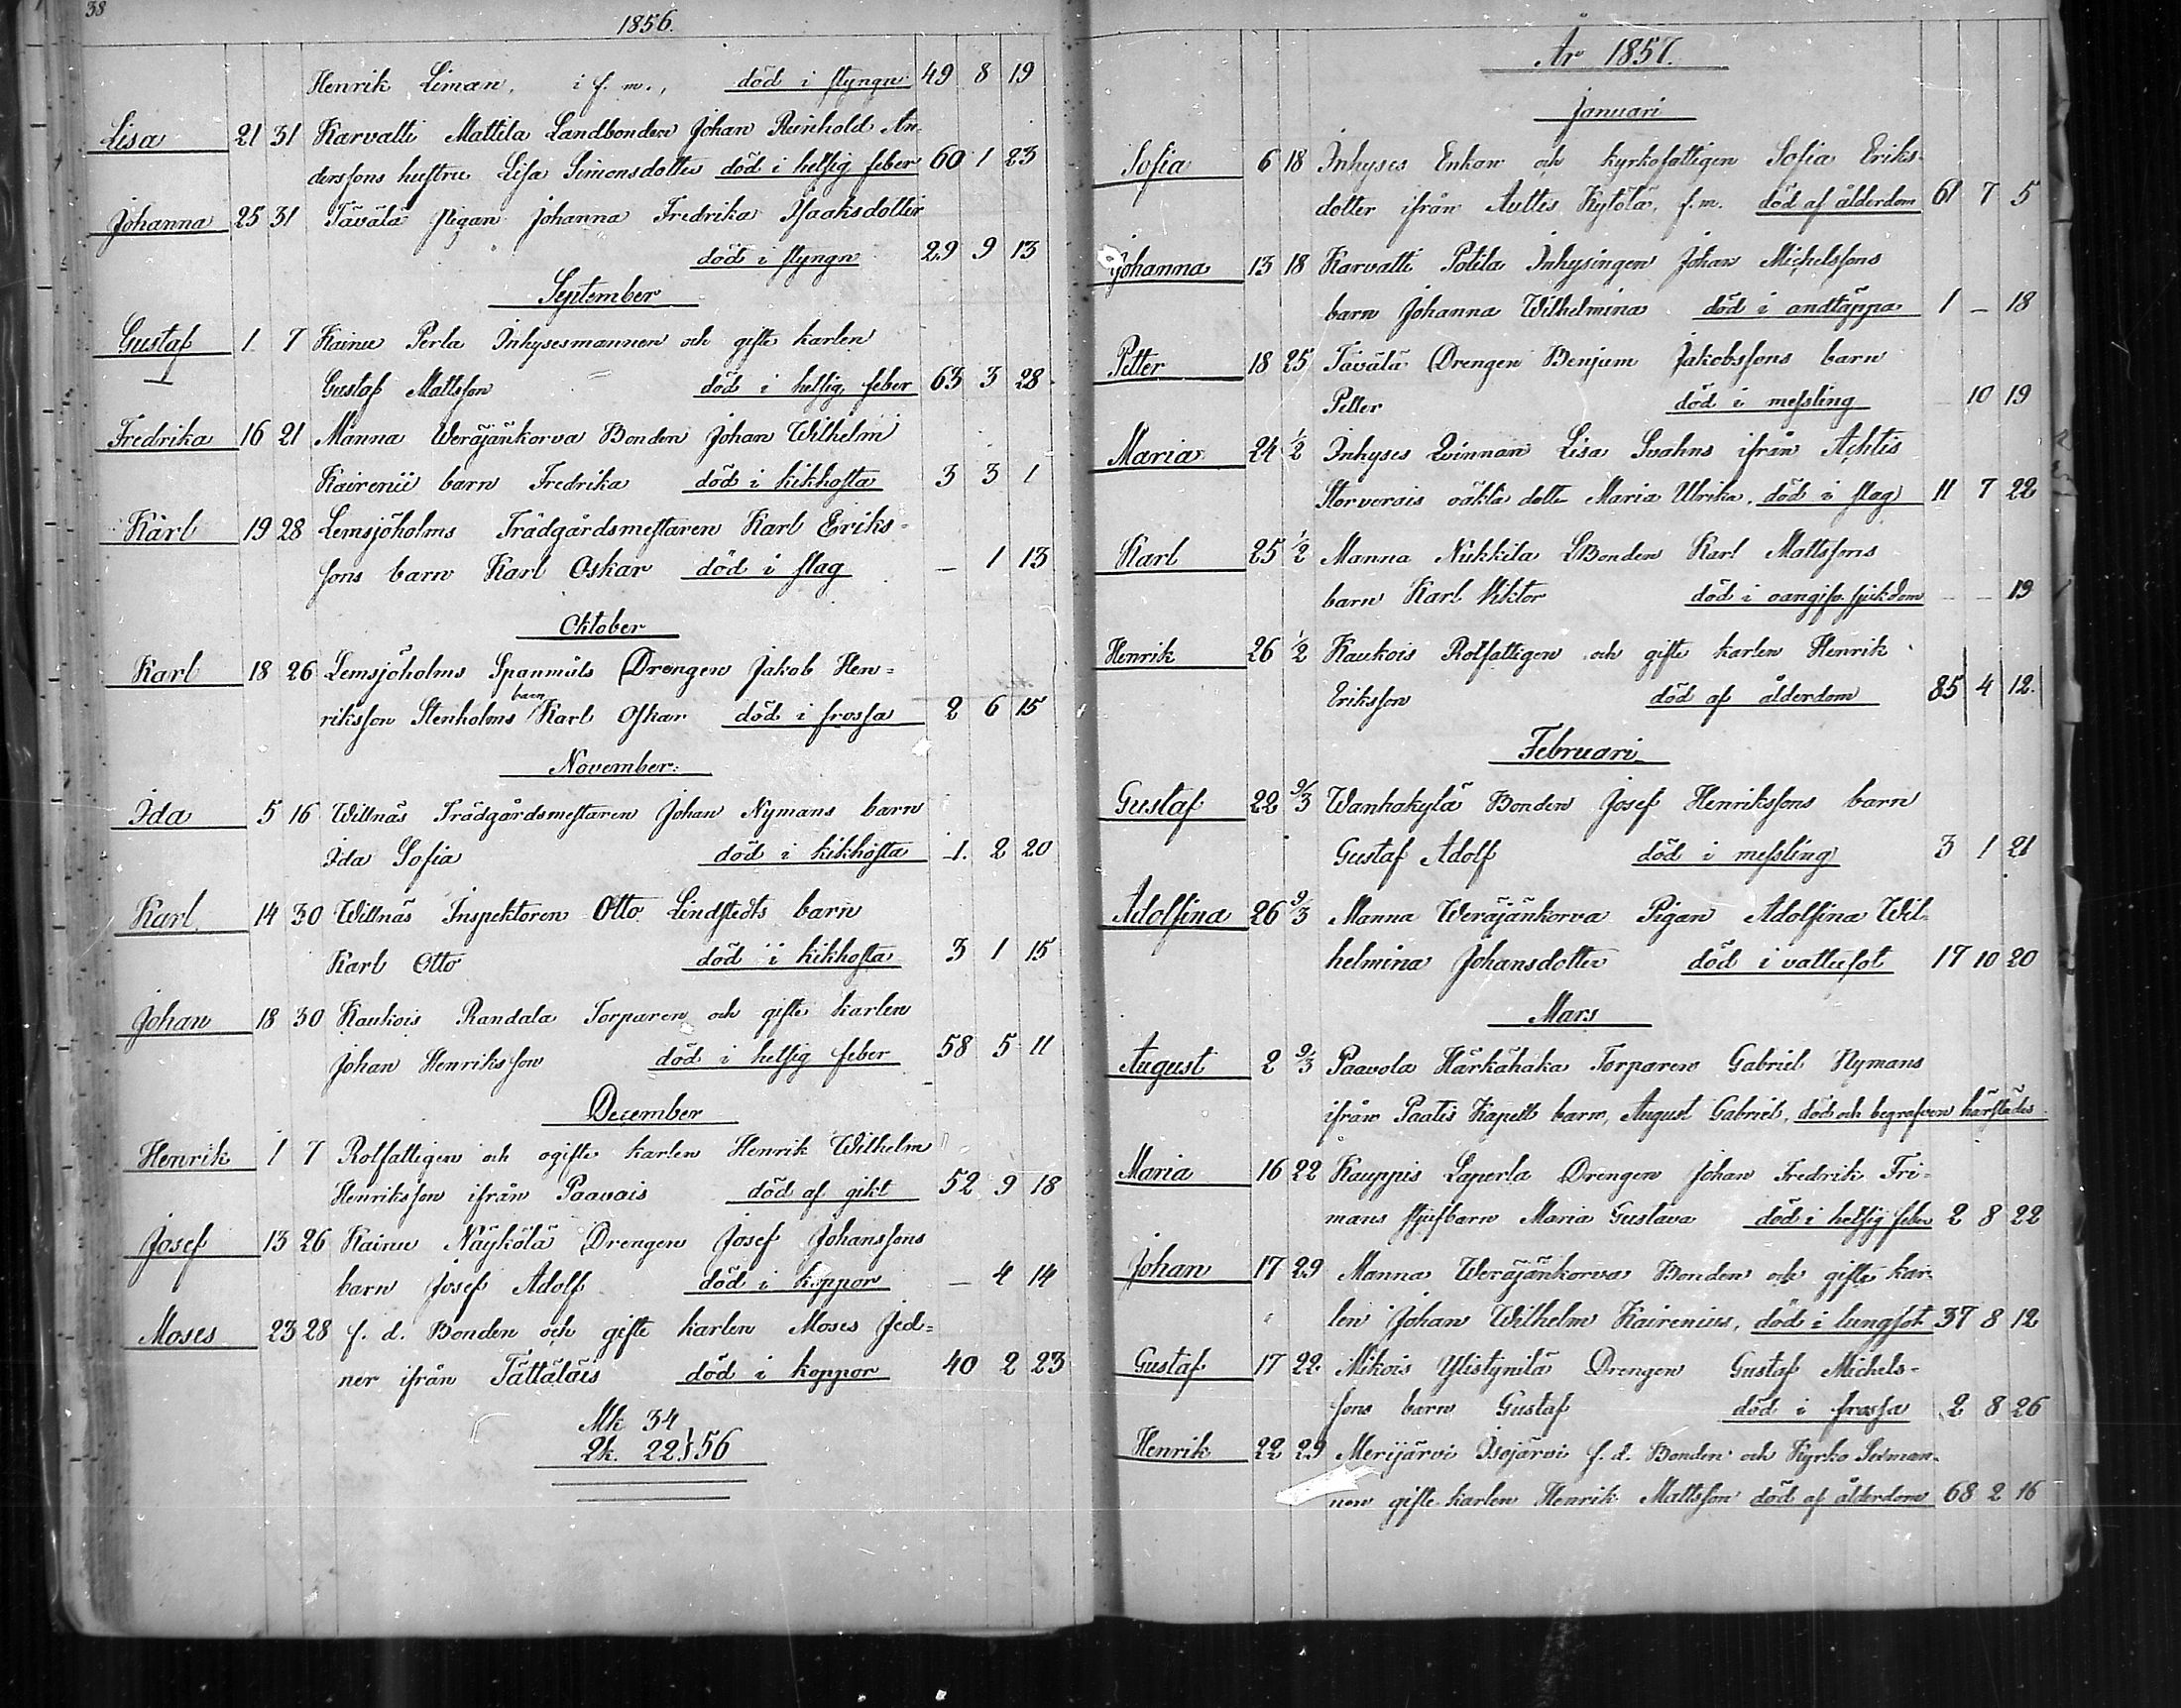 38
1856.
Henrik Liman, i f. m., död i styngn 49 8 19
Lisa 21 31 Karvatti Mattila Landbonden Johan Reinhold An-
derssons hustru Lisa Simonsdotter död i hetsig feber 60 1 23
Johanna 25 31 Tävälä Pigan Johanna Fredrika Isaaksdotter
död i styngn 29 9 13
September
Gustaf 1 7 Kainu Perla Inhysesmannen och gifte karlen
Gustaf Mattsson död i hetsig feber 63 3 28
Fredrika 16 21 Manna Weräjänkorva Bonden Johan Wilhelm
Kairenii barn Fredrika död i kikhosta 3 3 1
Karl 19 28 Lemsjöholms Trädgårdsmestaren Karl Eriks-
sons barn Karl Oskar död i slag — 1 13
Oktober
Karl 18 26 Lemsjöholms Spanmåls Drengen Jakob Hen=
riksson Stenholms barn Karl Oskar död i frossa 2 6 15
November:
Ida 5 16 Willnäs Trädgårdsmestaren Johan Nymans barn
Ida Sofia död i kikhosta 1. 2 20
Karl 14 30 Willnäs Inspektoren Otto Lindstedts barn
Karl Otto död i kikhosta 3 1 15
Johan 18 30 Kaukois Randala Torparen och gifte karlen
Johan Henriksson död i hetsig feber 58 5 11
December
Henrik 1 7 Rotfattigen och ogifte karlen Henrik Wilhelm
Henriksson ifrån Paavais död af gikt 52 9 18
Josef 13 26 Kainu Näykölä Drengen Josef Johanssons
barn Josef Adolf död i koppor — 4 14
Moses 23 28 f. d. Bonden och gifte karlen Moses Jed=
ner ifrån Tättäläis död i koppor 40 2 23
Mk 34
Qk. 22 } 56
År 1857.
Januari
Sofia 6 18 Inhyses Enkan och kyrkofattigen Sofia Eriks-
dotter ifrån Auttis Kytölä, f.m. död af ålderdom 61 7 5
Johanna 13 18 Karvatti Potila Inhysingen Johan Michelssons
barn Johanna Wilhelmina död i andtäppa 1 — 18
Petter 18 25 Tävälä Drengen Benjam Jakobssons barn
Petter död i messling 10 19
Maria 24 1/2 Inhyses Qvinnan Lisa Svahns ifrån Achtis
Storverais oäkta dotter Maria Ulrika, död i slag 11 7 22
Karl 25 1/2 Manna Nukkila LBonden Karl Mattssons
barn Karl Viktor död i oangifv. sjukdom — — 19
Henrik 26 1/2 Kaukois Rotfattigen och gifte karlen Henrik
Eriksson död af ålderdom 85 4 12.
Februari
Gustaf 22 9/3 Wanhakylä Bonden Josef Henrikssons barn
Gustaf Adolf död i messling 3 1 21
Adolfina 26 9/3 Manna Weräjänkorva Pigan Adolfina Wil-
helmina Johansdotter död i vattusot 17 10 20
Mars
August 2 9/3 Paavola Härkähaka Torparen Gabriel Nymans
ifrån Paatis Kapell barn, August Gabriel, död och begrafven härstädes.
Maria 16 22 Kauppis Laperla Drengen Johan Fredrik Fri-
mans styfbarn Maria Gustava död i hetsig feber 2 8 22
Johan 17 29 Manna Weräjänkorva Bonden och gifte kar-
len Johan Wilhelm Kairenius, död i lungsot 37 8 12
Gustaf 17 22 Mikois Ylistynilä Drengen Gustaf Michels-
sons barn Gustaf död i frossa 2 8 26
Henrik 22 29 Merijärvi Isojärvi f. d. Bonden och Kyrko Sexman-
nen gifte karlen Henrik Mattsson död af ålderdom 68 2 16